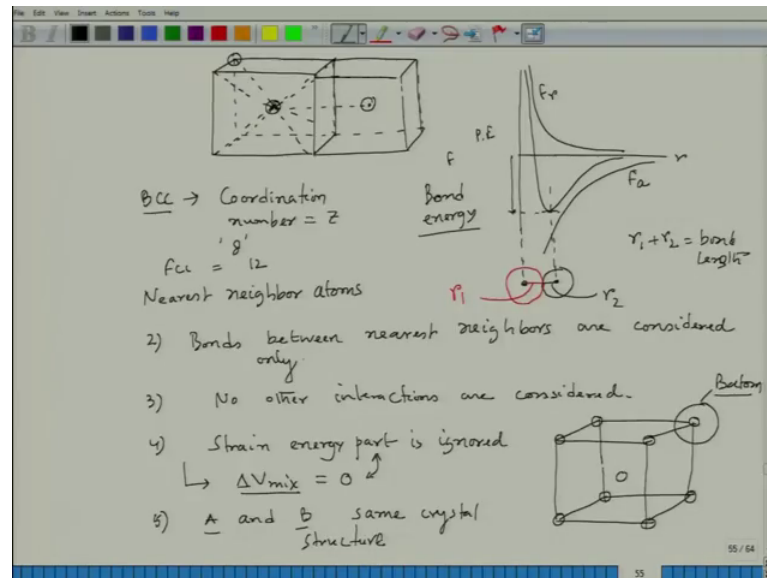 File Edit View Insert Actions Tools Help
B I
A
Fr
P.E
F
r
Fa
BCC → Coordination
number = Z
'8'
FCC = 12
Nearest neighbor atoms
Bond
energy
r1 + r2 = bond
length
r1
r2
2) Bonds between nearest neighbors are considered
only.
3) No other interactions are considered.
4) Strain energy part is ignored
↳ ΔVmix = 0
5) A and B same crystal
structure
B atom
55 / 64
55